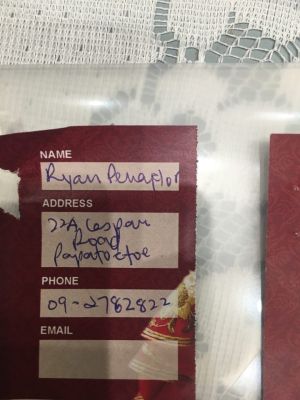 NAME
Ryan Penaflor
ADDRESS
22A Caspar
Road
Papatoetoe
PHONE
09-2782822
EMAIL